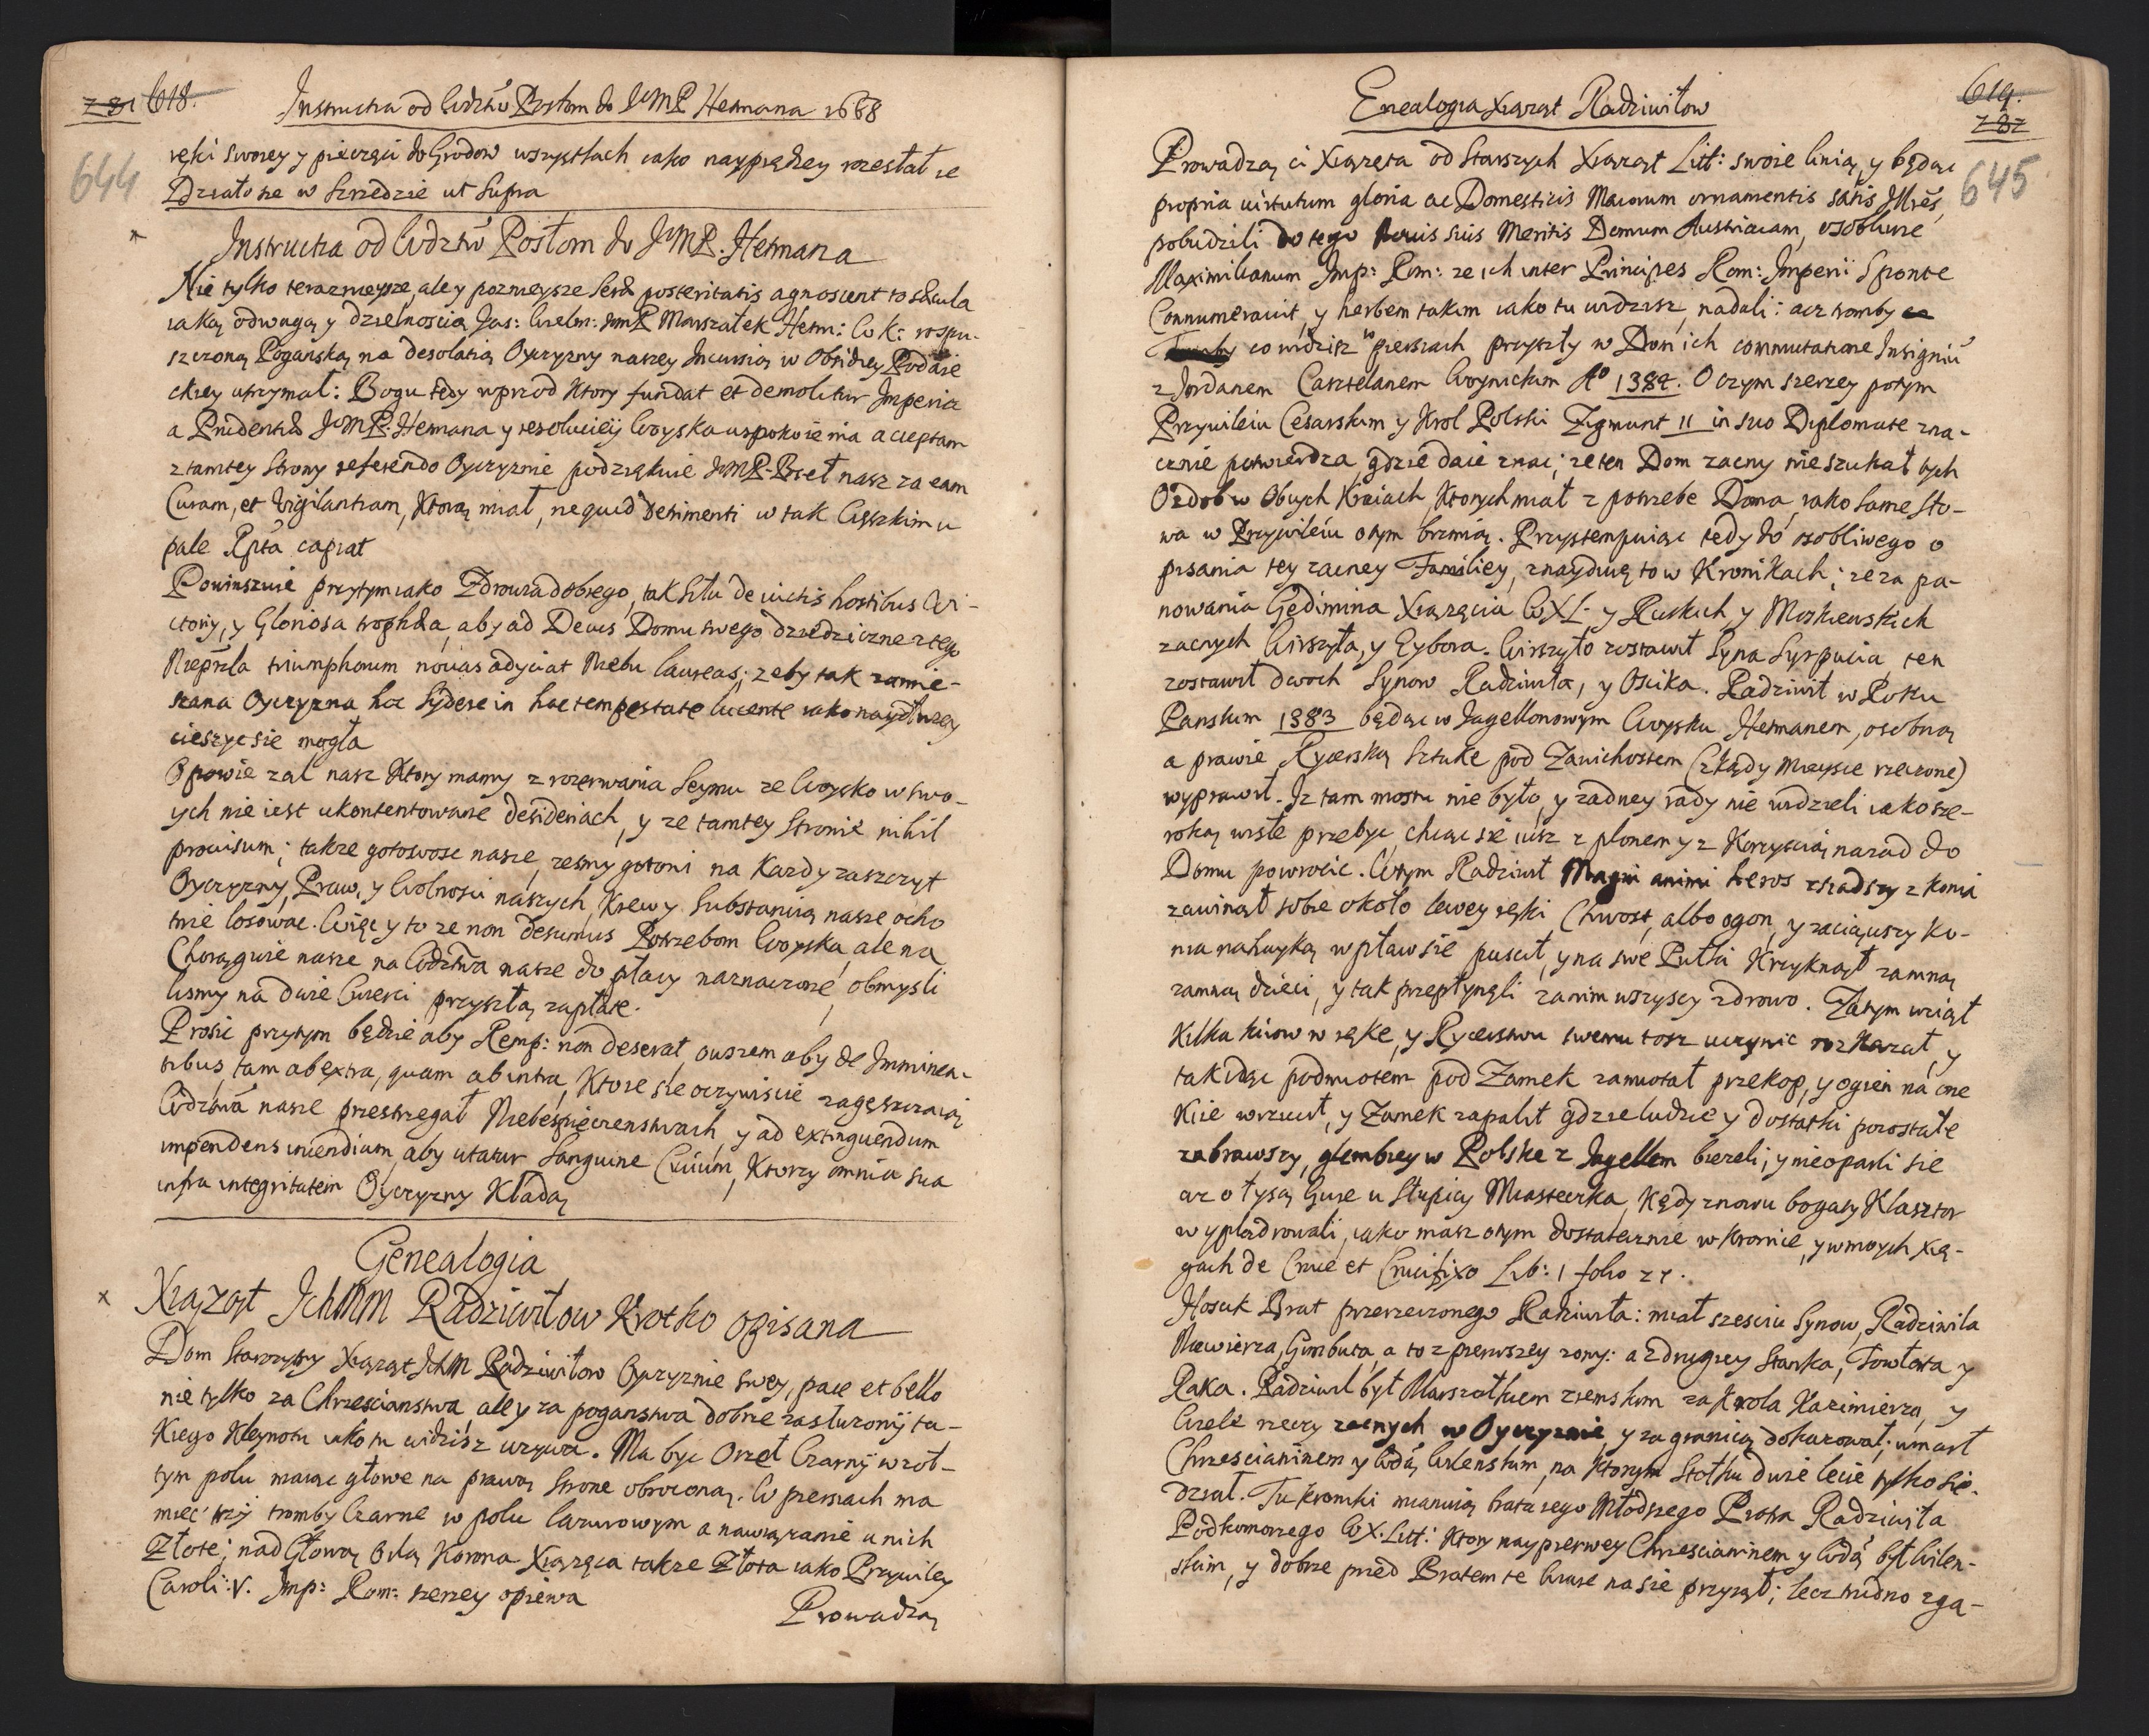 781 618.
Instructia od Wdztw Posłom do JeMP Hetmana 1668
644
ręki swoiey y pieczęci do Grodow wszystkich iako nayprędzey rozesłał ie
Działo sie w Szredzie ut Supra
Instructia od Wdztw Posłom do JeMP. Hetmana
Nie tylko teraznieysze, ale y poznieysze Seræ posteritatis agnoscent to sæcula
iaką odwagą y dzielnoscią Jas: Wielm: JemP Marszałek Hetm: W k: rospu-
szczoną Poganską na desolatią Oyczyzny naszey Incursią w Obsidiey Podaie
ckiey utrzymał: Bogu tedy wprzod Ktory fundat et demolitur Imperia
a Prudentiæ JeMP. Hetmana y resolucięj Woyska uspokoienia acceptam
z tamtey Strony referendo Oyczyznie podziękuie JeMP. Poseł nasz za eam
Curam, et Vigilantiam, Ktorą miał, ne quid Detrimenti w tak Ciężkim u
pale Rpta capiat
Powinszuie przytym iako Zdrowia dobrego, tak Situ de victis hostibus Wi-
ctoriy, y Gloriosa trophæa, aby ad Decus Domu swego dziedziczne z tego
Nieprzla triumphorum novas adyciat Niebu laureas; zeby tak zamie-
szana Oyczyzna hoc Sydere in hac tempestate lucente iako naydłuzey
cieszyc sie mogła
Opowie zal nasz Ktory mamy z rozerwania Seymu ze Woysko w swo-
ych nie iest ukontentowane desideriach, y ze tamtey Stronie nihil
provisum; takze gotowosc nasze, zesmy gotowi na Kazdy zaszczyt
Oyczyzny, Praw, y Wolnosci naszych, Krew y Substantią nasze ocho
tnie losowac. Więc y to ze non desumus Potrzebom Woyska, ale na
Chorągwie nasze na Wdztwa nasze do płacy naznaczone obmysli
lismy na dwie Cwierci przyszłą zapłate.
Prosic przytym będzie aby Remp: non deserat, owszem aby de Imminen-
tibus, tam ab extra, quam ab intra, Ktore sie oczywiscie zagęszczaią
Wdztwa nasze przestrzegał Niebespieczenstwach, y ad extinguendum
impendens incendium, aby utatur Sanguine Civium, Ktorzy omnia sua
infra integritatem Oyczyzny Kładą
Genealogia
x Xiążąt Ichmm Radziwiłow Krotko opisana
Dom Starozytny Xiążąt IchM Radziwiłow Oyczyznie swey, pace et bello
nie tylko za Chrzescianstwa, ale y za poganstwa dobrze zasłuzonij ta-
kiego Kleynotu iako tu widzisz uzywa. Ma byc Orzeł Czarnij w zoł-
tym polu maiąc głowe na prawą Strone obroconą. W piersiach ma
miec trzij tromby Czarne w polu lazurowym a nawiązanie u nich
Złote; nad Głową Orlą Korona Xiążęca takze Złota iako Przywiley
Caroli: V. Imp: Rom: szerzey opiewa
Prowadzą
Enealogia Xiążąt Radziwiłow
619.
787
645
Prowadzą ci Xiążęta od Starszych Xiążąt Litt: swoie linią, y będąc
propria virtutum gloria ac Domesticis Maiorum ornamentis satis Illres,
pobudzili do tego suis Meritis Domum Austriacam, osobliwie
Maximilianum Imp: Rom: ze ich inter Principes Rom: Imperii Sponte
Connumeravit, y herbem takim iako tu widzisz, nadali: acz tromby
co widzisz w piersiach przyszły w Dom ich commutatione Insigniu
z Jordanem Casztelanem Woynickim Ao 1384. O czym szerzey potym
Przywileiu Cesarskim y Krol Polski Zigmunt II in suo Diplomate zna-
cznie potwierdza, gdzie daie znac; ze ten Dom zacny nie szukał tych
Ozdob w Obcych Kraiach, Ktorych miał z potrzebe Doma, iako same sło-
wa w Przywileiu o tym brzmią. Przystempuiąc tedy do osobliwego o
pisania tey zacney Familiey, znayduię to w Kronikach; ze za pa-
nowania Gedimina Xiążęcia WXL. y Ruskich, y Mozhewskich
zacnych Wirszyła, y Eybora. Wirszyło zostawił Syna Syrpucia ten
zostawił dwoch Synow Radziwiła, y Oscika. Radziwił w Roku
Panskim 1383 będąc w Jagellonowym Woysku Hetmanem, osobną
a prawie Rycerską Sztuke pod Zawichostem (zkądy Mieysce rzeczone)
wyprawił. Iz tam mostu nie było, y zadney rady nie widzieli iako sze-
roką wisłe przebyc, chcąc sie iusz z plonem y z Korzyscią nazad do
Domu powrocic. Wtym Radziwił Magni animi heros zsiadszy z Konia
zawinął sobie około lewey ręki Chwost, albo ogon, y zaciąwszy Ko-
nia nahayką wpław sie puscił, y na swe Pułki Krzyknął zamną
zamną dzieci, y tak przepłynęli zanim wszyscy zdrowo. Zatym wziął
Kilka kiiow w ręke, y Rycerstwu swemu tosz uczynic rozkazał, y
tak idąc podmiotem pod Zamek zamiotał przekop, y ogien na one
Kiie wrzucił, y Zamek zapalił gdzie ludzie y dostatki pozostałe
zabrawszy, głembiey w Polskę z Jagellem biezeli; y nieoparli sie
az o łysą Gure u Słupicy Miasteczka, Kędy znowu bogaty Klasztor
wyplądrowali, iako masz o tym dostatecznie w kronice, y w moych Xię-
gach de Cruce et Crucifixo Lib: 1 folio 27.
Hoscik Brat przerzeczonego Radziwiła: miał szesciu Synow, Radziwiła
Niewierza, Gimbuta, a to z pierwszey zony: a z drugiey Stanka, Towtowta y
Raka. Radziwił był Marszałkiem ziemskim za Krola Kazimierza, y
Wiele rzeczy zacnych w Oyczyznie, y za granicą dokazował; umarł
Chrzescianinem y Wdą Wilenskim, na Ktorym Stołku dwie lecie tylko sie-
dział. Tu Kroniki mianuią brata iego Młodszego Piotra Radziwiła
Podkomorzego WX. Litt: Ktory naypierwey Chrzescianinem y Wdą był Wilen-
skim, y dobrze przed Bratem te Wiare na sie przyiął; lecz trudno zga-